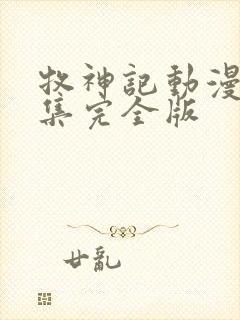 牧神記動漫
集完全版
廿亂